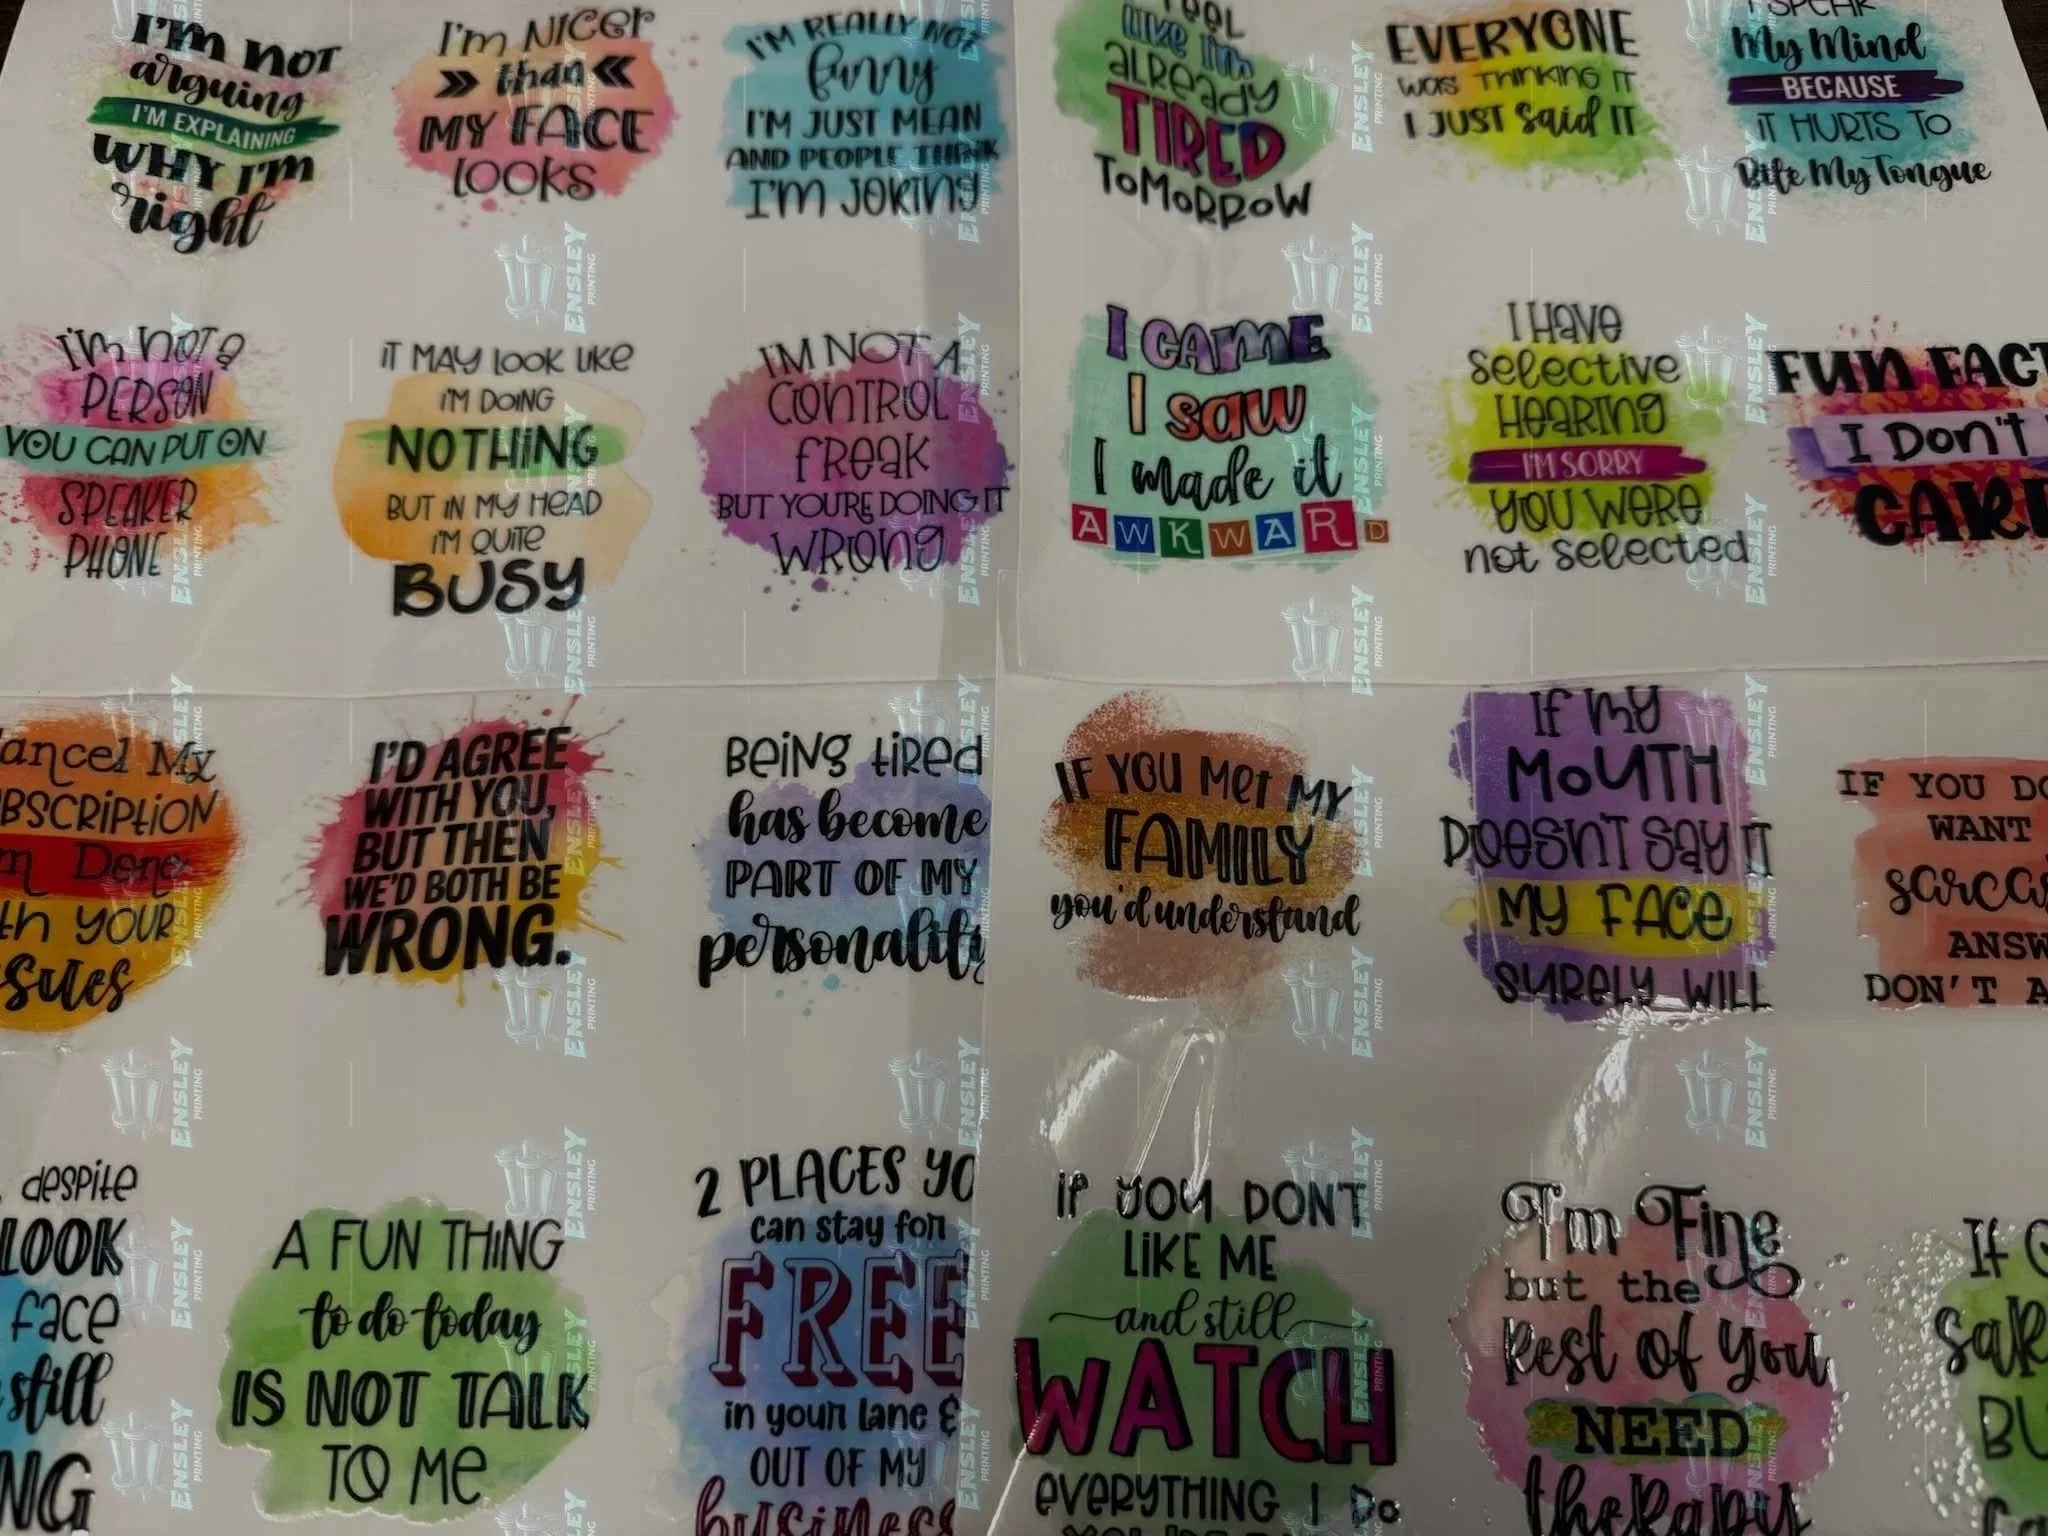 I'M NOT
arguing
I'M EXPLAINING
WHY I'M
right
I'm NICER
than
MY FACE
LOOKS
I'M REALLY NOT
funny
I'M JUST MEAN
AND PEOPLE THINK
I'M JOKING
I FEEL
LIKE I'm
already
TIRED
TOMORROW
EVERYONE
was THINKING IT
I JUST Said IT
I SPEAK
My Mind
BECAUSE
IT HURTS TO
Bite My Tongue
I'm not a
PERSON
YOU CAN PUT ON
SPEAKER
PHONE
IT MAY LOOK LIKE
I'M DOING
NOTHING
BUT IN MY HEAD
I'M QUITE
BUSY
I'M NOT A
CONTROL
FREAK
BUT YOU'RE DOING IT
WRONG
I CAME
I saw
I made it
AWKWARD
I HAVE
Selective
HEARING
I'M SORRY
YOU WERE
not selected
FUN FACT
I Don't
CARE
Cancel My
I'D AGREE
WITH YOU,
BUT THEN
WE'D BOTH BE
WRONG.
BEING tired
has become
PART OF MY
personality
IF YOU Met MY
FAMILY
you'd understand
IF MY
MOUTH
DOESN'T Say IT
MY FACE
SURELY WILL
IF YOU DO
WANT
sarcas
ANSW
DON'T A
BSCRIPTION
m Done
th YOUR
ssues
despite
LOOK
face
still
NG
A FUN THING
to do today
IS NOT TALK
TO ME
2 PLACES YO
can stay for
FREE
in your lane &
OUT OF MY
business
IF YOU DON'T
LIKE ME
and still
WATCH
EVERYTHING I DO
I'm Fine
but the
Rest of You
NEED
therapy
If
SaR
BU
ENSLEY
PRINTING